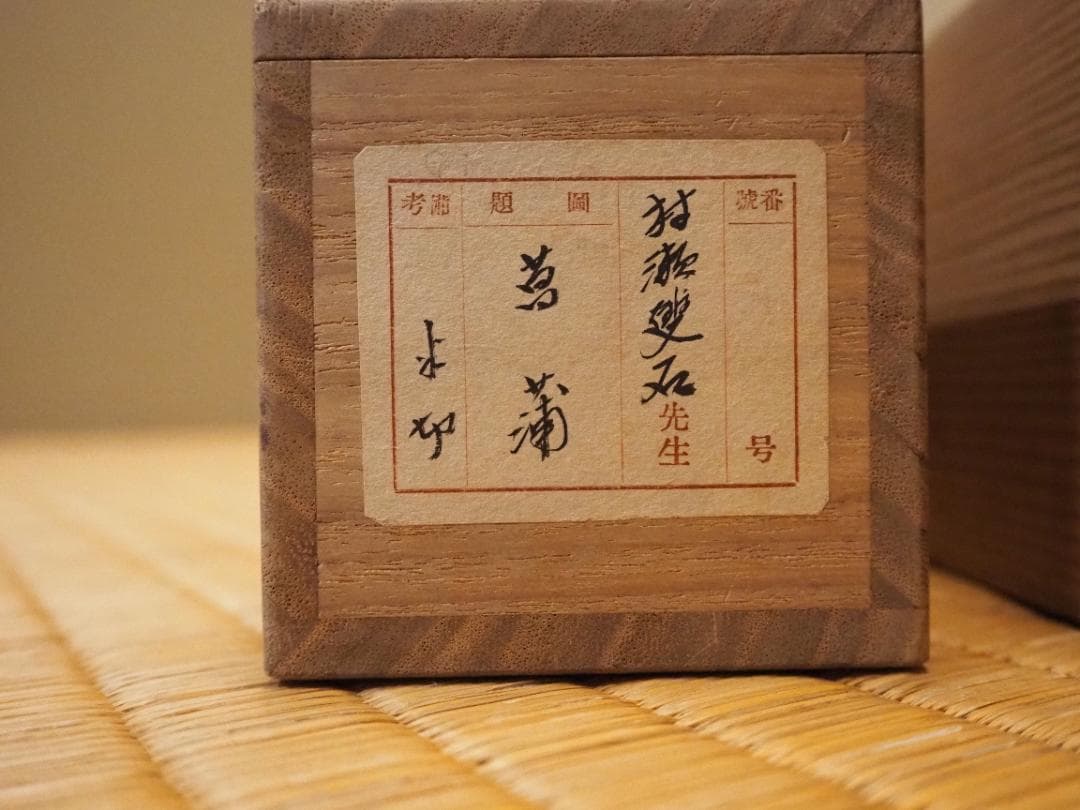 番號
号
村瀬雙石先生
圖題
菖蒲
備考